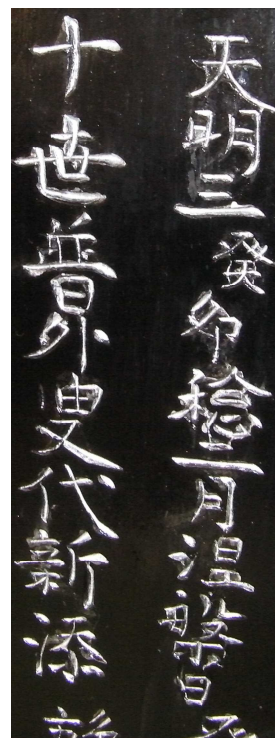 天明三癸卯稔二月涅槃日
十世普外叟代新添